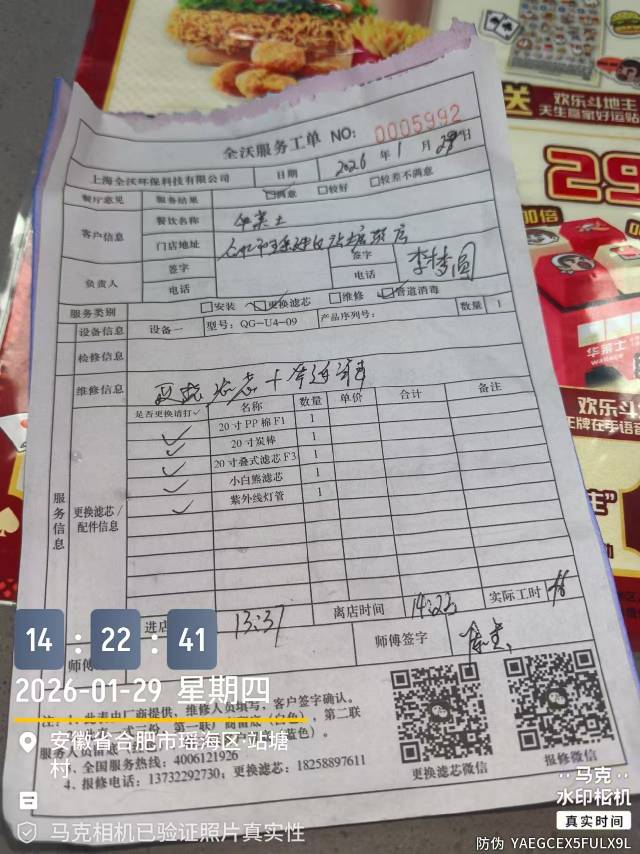 送
欢乐斗地主
天生赢家好运贴
29
华莱士
wallace
欢乐斗地
王牌在手语音
全沃服务工单 NO: 0005992
上海全沃环保科技有限公司 日期 2026 年 1 月 29 日
餐厅意见 服务结果 满意 较好 较差不满意
客户信息 餐饮名称 华莱士
门店地址
负责人 签字 签字 李梦圆
电话 电话
服务类别 安装 更换滤芯 维修 管道消毒
设备信息 设备一 型号: QG-U4-09 产品序列号: 数量 1
检修信息
维修信息 更换滤芯+管道消毒
服务信息
更换滤芯/
配件信息
是否更换请打✓ 名称 数量 单价 合计 备注
✓ 20寸PP棉F1 1
✓ 20寸炭棒 1
✓ 20寸叠式滤芯F3 1
✓ 小白熊滤芯 1
✓ 紫外线灯管 1
进店 13:37 离店时间 14:22 实际工时
师傅 师傅签字
注: 1、此表由厂商提供, 维修人员填写, 客户签字确认。
3、全国服务热线: 4006121926
4、报修电话: 13732292730; 更换滤芯: 18258897611
更换滤芯微信
报修微信
14:22:41
2026-01-29 星期四
安徽省合肥市瑶海区·站塘
村
马克相机已验证照片真实性
马克
水印相机
真实时间
防伪 YAEGCEX5FULX9L